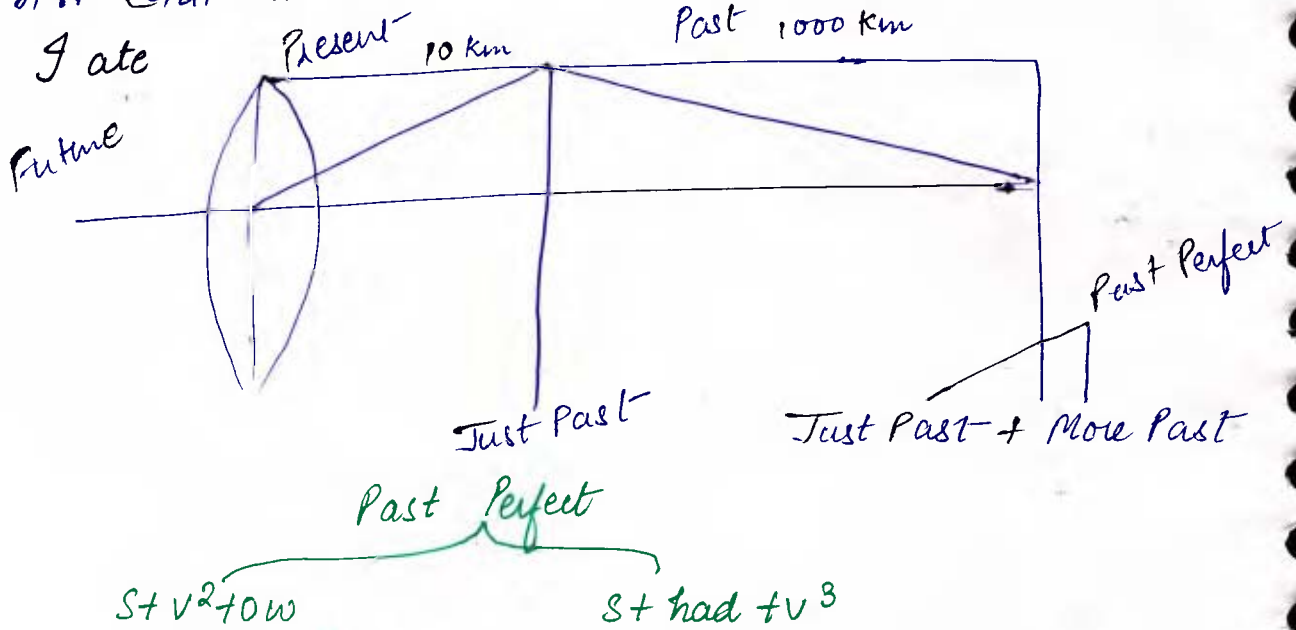 I ate
Present 10 km Past 1000 km
Future
Past Perfect
Just Past Just Past + More Past
Past Perfect
S+ V²+OW S+ had +V³